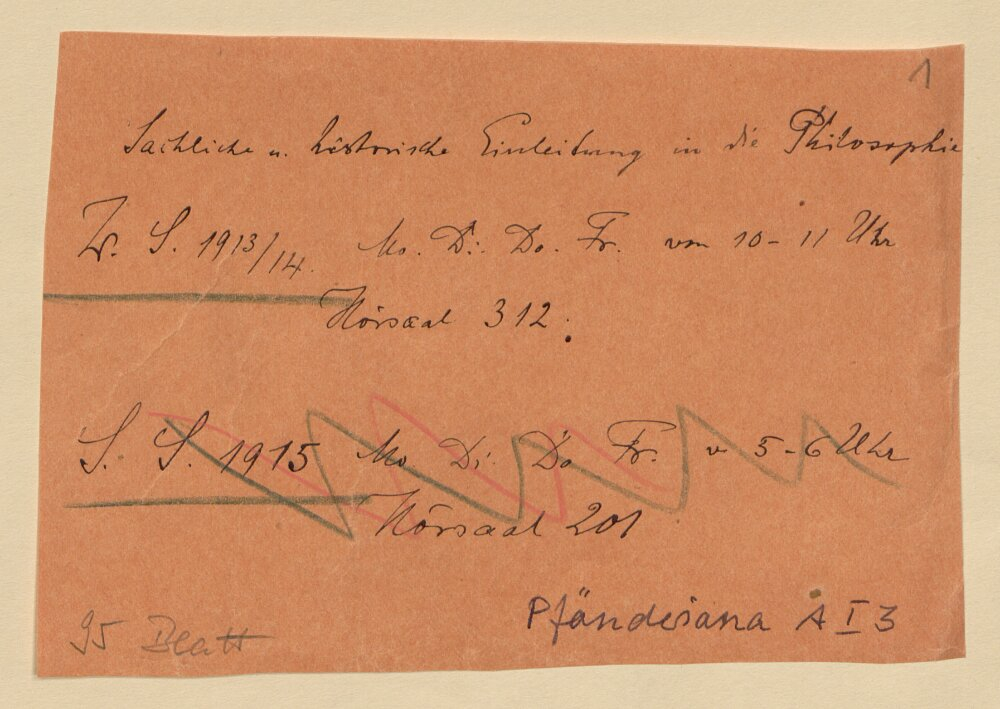 1
Sachliche u. historische Einleitung in die Philosophie
W. S. 1913/14. Mo. Di. Do. Fr. von 10-11 Uhr
Hörsaal 312.
S. S. 1915 Mo Di. Do Fr. v 5-6 Uhr
Hörsaal 201
Pfänderiana A I 3
95 Blatt